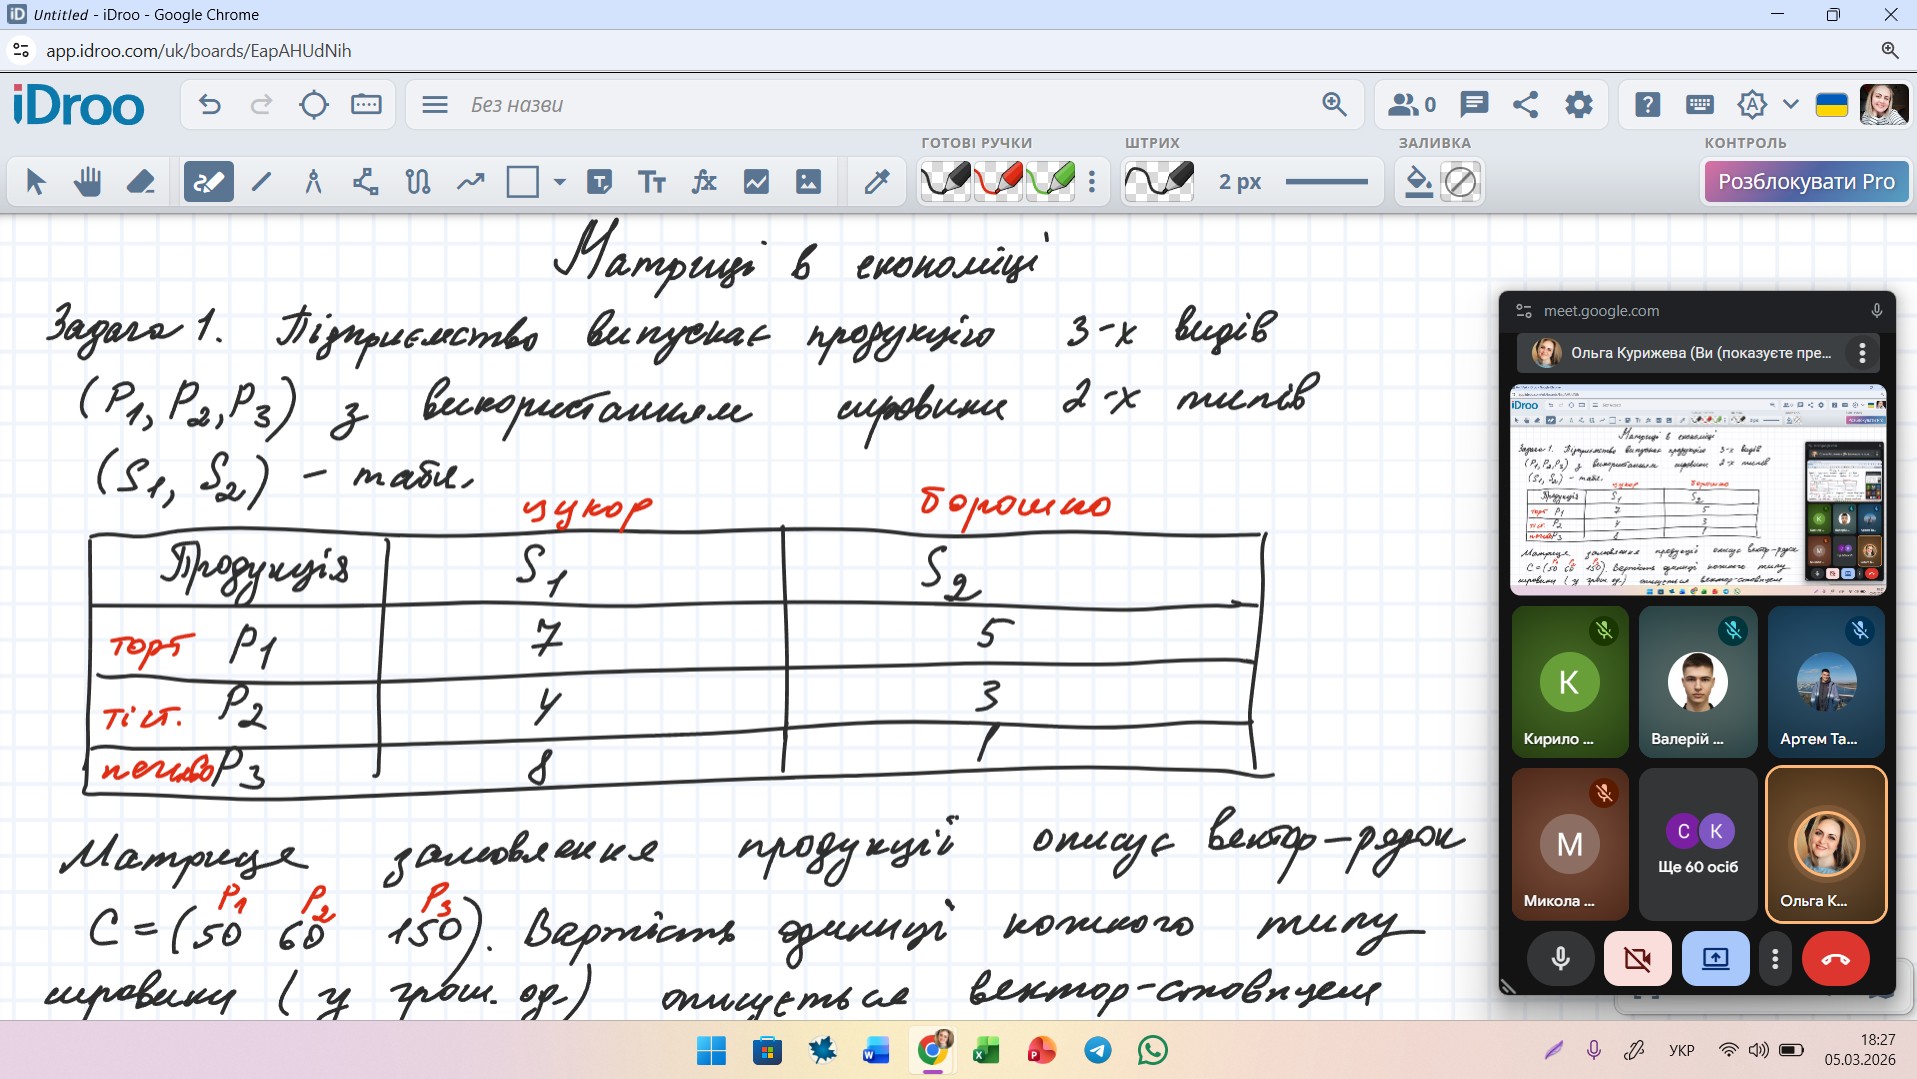 Untitled - iDroo - Google Chrome
app.idroo.com/uk/boards/EapAHUdNih
iDroo
Без назви
0
ГОТОВІ РУЧКИ
ШТРИХ
2 px
ЗАЛИВКА
КОНТРОЛЬ
Розблокувати Pro
Матриці в економіці
Задача 1. Підприємство випускає продукцію 3-х видів
(P1, P2, P3) з використанням сировини 2-х типів
(S1, S2) - табл.
цукор борошно
Продукція S1 S2
торт P1 7 5
тіст. P2 4 3
печиво P3 8 1
Матриця замовлення продукції описує вектор-рядок
P1 P2 P3
C = (50 60 150). Вартість одиниці кожного типу
сировини (у грош. од.) описується вектор-стовпцем
meet.google.com
Ольга Курижева (Ви (показуєте пре...
К
Кирило ...
Валерій ...
Артем Та...
М
Микола ...
С К
Ще 60 осіб
Ольга К...
УКР
18:27
05.03.2026